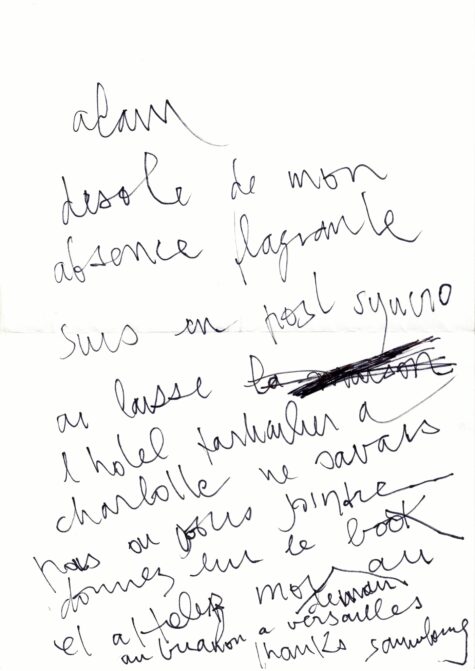 alain
desole de mon
absence flagrante
suis en post syncro
ai laisse la maison
l hotel particulier a
charlotte ne savais
pas ou vous joindre
donnez lui le book
et appeler moi au
demain
au trianon a versailles
thanks